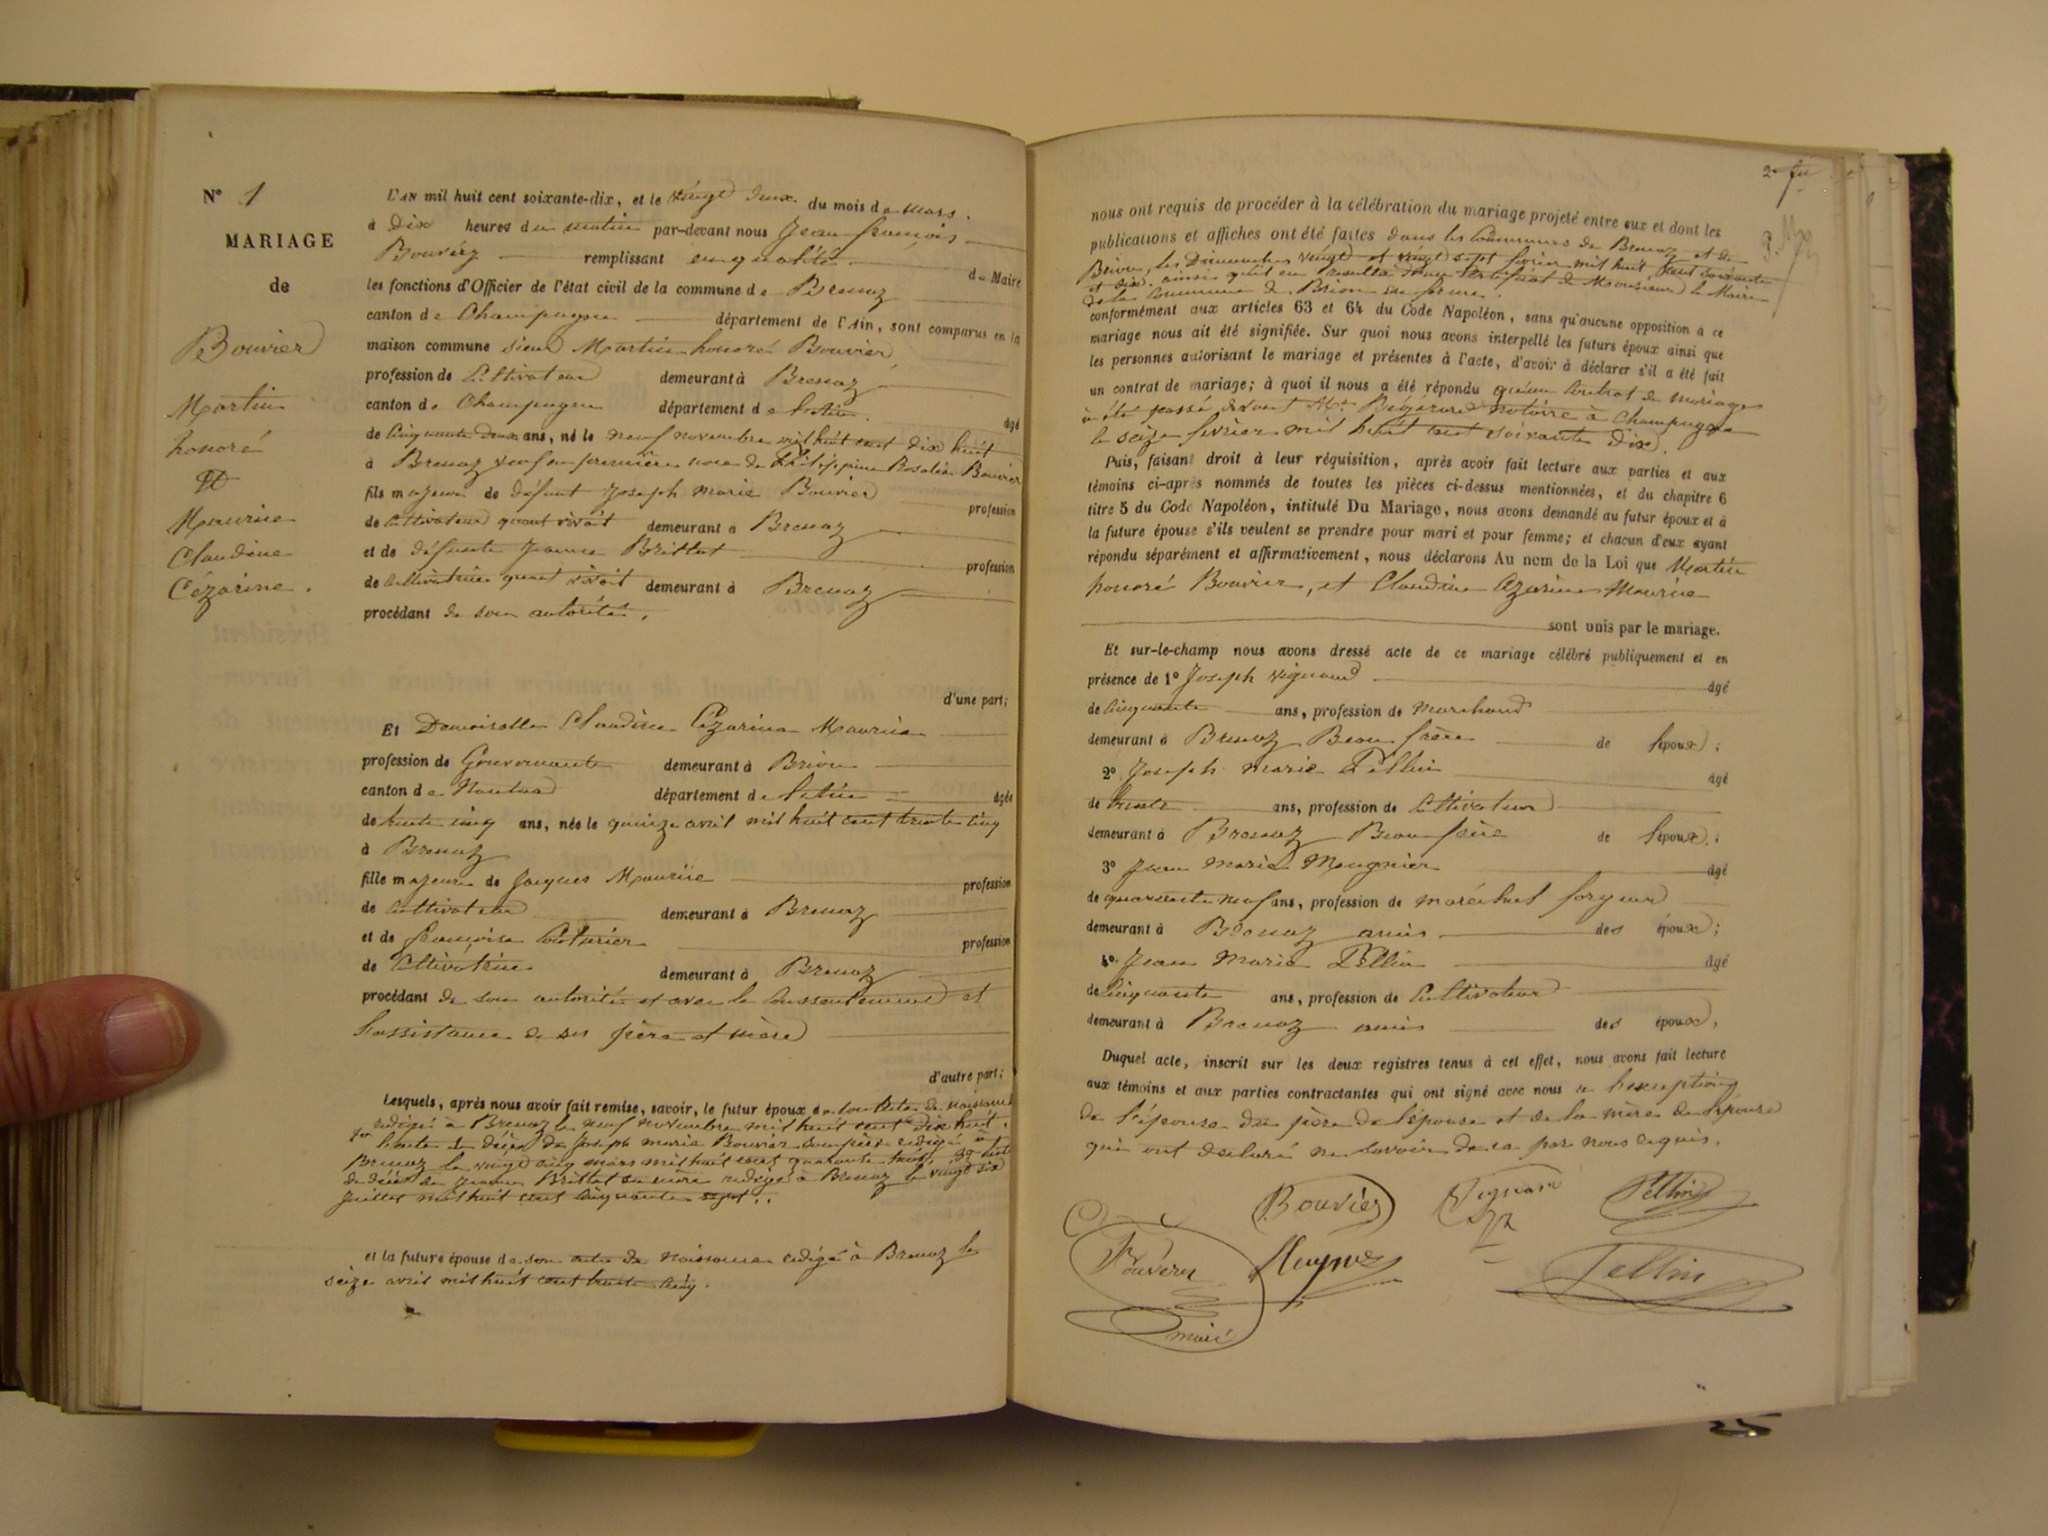 N° 1
MARIAGE
de
Bouvier
Martin
honoré
Et
Maurice
Claudine
Cézarine.
L'AN mil huit cent soixante-dix, et le vingt deux du mois de mars.
à dix heures du matin par-devant nous Jean françois
Bouvier remplissant en qualité de Maire
les fonctions d'Officier de l'état civil de la commune de Brenaz
canton de Champagne département de l'Ain, sont comparus en la
maison commune sieur Martin honoré Bouvier
profession de Cultivateur demeurant à Brenaz
canton de Champagne département de l'ain. âgé
de Cinquante deux ans, né le neuf novembre mil huit cent dix huit
à Brenaz veuf en première noce de Philippine Rosalie Bouvier
fils majeur de défunt Joseph marie Bouvier profession
de Cultivateur quant vivait demeurant à Brenaz
et de défunte Jeanne Brittat profession
de Cultivatrice quant vivait demeurant à Brenaz
procédant de son autorité.
d'une part;
Et Demoiselle Claudine Cézarine Maurice
profession de Gouvernante demeurant à Brion
canton de Nantua département de l'Ain âgée
de trente cinq ans, née le quinze avril mil huit cent trente cinq
à Brenaz
fille majeure de Jacques Maurice profession
de Cultivateur demeurant à Brenaz
et de françoise Couturier profession
de Cultivatrice demeurant à Brenaz
procédant de son autorité et avec le Consentement et
l'assistance de ses père et mère
d'autre part;
Lesquels, après nous avoir fait remise, savoir, le futur époux de son acte de naissance
rédigé à Brenaz le neuf novembre mil huit cent dix huit.
l'acte de décès de Joseph marie Bouvier son père rédigé à
Brenaz le vingt cinq mars mil huit cent quarante trois. acte
de décès de Jeanne Brittat sa mère rédigé à Brenaz le vingt six
Juillet mil huit cent cinquante sept.
et la future épouse de son acte de Naissance rédigé à Brenaz le
seize avril mil huit cent trente cinq.
nous ont requis de procéder à la célébration du mariage projeté entre eux et dont les
publications et affiches ont été faites dans les Communes de Brenaz et de
Brion, les Dimanches vingt et vingt sept février mil huit cent soixante
et dix. ainsi qu'il en résulte du certificat de Monsieur le Maire
de la Commune de Brion en forme.
conformément aux articles 63 et 64 du Code Napoléon, sans qu'aucune opposition à ce
mariage nous ait été signifiée. Sur quoi nous avons interpellé les futurs époux ainsi que
les personnes autorisant le mariage et présentes à l'acte, d'avoir à déclarer s'il a été fait
un contrat de mariage; à quoi il nous a été répondu qu'un Contrat de mariage
à été passé devant Me notaire à Champagne
le seize février mil huit cent soixante dix.
Puis, faisant droit à leur réquisition, après avoir fait lecture aux parties et aux
témoins ci-après nommés de toutes les pièces ci-dessus mentionnées, et du chapitre 6
titre 5 du Code Napoléon, intitulé Du Mariage, nous avons demandé au futur époux et à
la future épouse s'ils veulent se prendre pour mari et pour femme; et chacun d'eux ayant
répondu séparément et affirmativement, nous déclarons Au nom de la Loi que Martin
honoré Bouvier, et Claudine Cézarine Maurice
sont unis par le mariage.
Et sur-le-champ nous avons dressé acte de ce mariage célébré publiquement et en
présence de 1° Joseph Vignand âgé
de Cinquante ans, profession de Marchand
demeurant à Brenaz Beau frère de l'époux;
2° Joseph marie Tellin âgé
de trente ans, profession de Cultivateur
demeurant à Brenaz Beau frère de l'époux;
3° Jean Marie Meugnier âgé
de quarante neuf ans, profession de maréchal forgeur
demeurant à Brenaz amis des époux;
4° Jean Marie Tellin âgé
de Cinquante ans, profession de Cultivateur
demeurant à Brenaz amis des époux,
Duquel acte, inscrit sur les deux registres tenus à cet effet, nous avons fait lecture
aux témoins et aux parties contractantes qui ont signé avec nous a l'exception
de l'épouse du père de l'épouse et de la mère de l'épouse
qui ont déclaré ne savoir de ce par nous requis.
Bouvier Vignand Tellin
Bouvier Tellin
maire